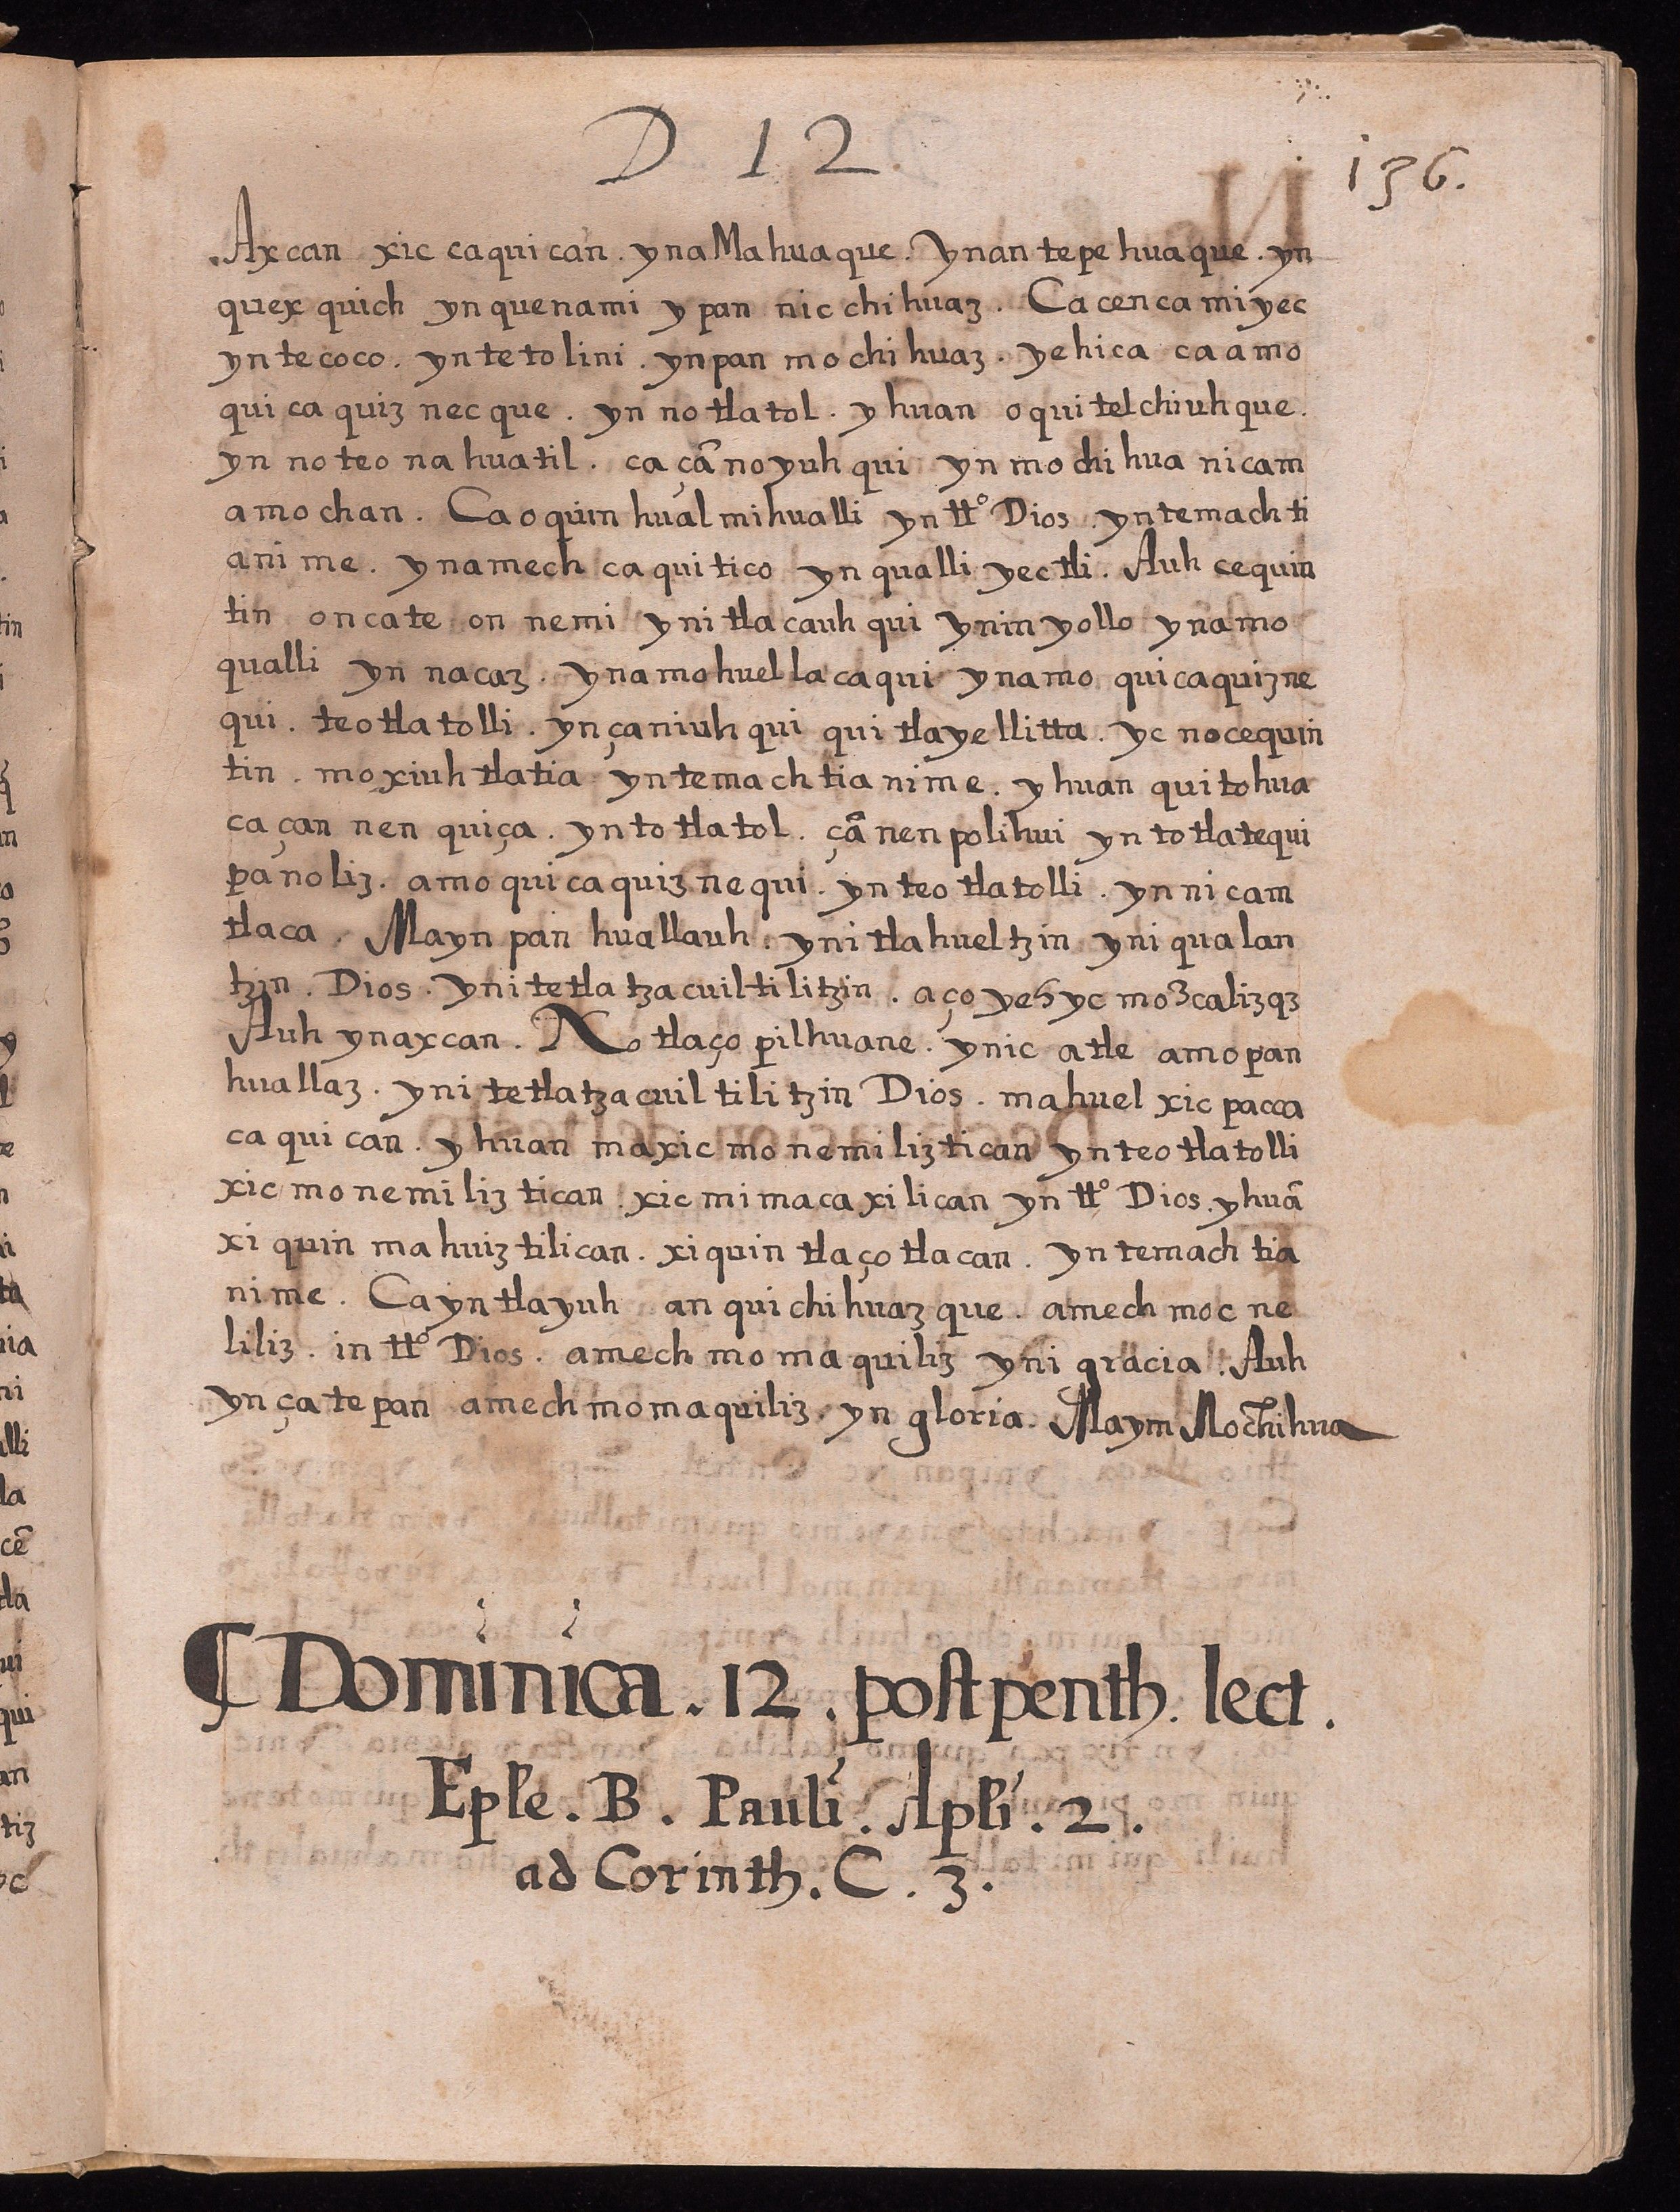 D 12
136.
Axcan xic caquican. ynaMahuaque. Ynan tepehuaque. yn
quexquich ynquenami ypan nicchihuaz. Cacenca miyec
yntecoco. yntetolini. ynpan mochihuaz. yehica caamo
quicaquiznecque. yn notlatol. yhuan oquitelchiuhque.
yn noteonahuatil. caçã noyuhqui ynmochihua nicam
amochan. Caoquin hualmihualli yn tt° Dios. yntemachti
anime. ynamech caquitico yn qualli yectli. Auh cequin
tin oncate on nemi ynitlacauhqui ynin yollo ynamo
qualli yn nacaz. ynamohuellacaqui ynamo quicaquizne
qui. teotlatolli. ynçaniuhqui quitlayellitta. yc nocequin
tin. moxiuhtlatia yntemachtianime. yhuan quitohua
caçan nen quiça. yntotlatol. çã nenpolihui yn totlatequi
panoliz. amo quicaquiznequi. ynteotlatolli. yn nicam
tlaca. Mayn pan huallauh. ynitlahueltzin yni qualan
tzin. Dios. ynitetlatzacuiltilitzin. aço yeh yc mozcalizqz
Auh ynaxcan. No tlaço pilhuane. ynic atle amopan
huallaz. ynitetlatzacuiltilitzin Dios. mahuel xic pacca
caquican. yhuan maxic monemiliztican ynteotlatolli
xicmonemiliztican. xic mimacaxilican yn tt° Dios. yhuã
xiquin mahuiztilican. xiquin tlaçotlacan. yntemachtia
nime. Cayntlayuh anquichihuazque. amech mocne
liliz. in tt° Dios. amech momaquiliz yni gracia. Auh
ynçatepan amechmomaquiliz. yn gloria. Maym Mochihua
¶ Dominica. 12. post penth. lect.
Eple. B. Pauli. Apli. 2.
ad Corinth. C. 3.